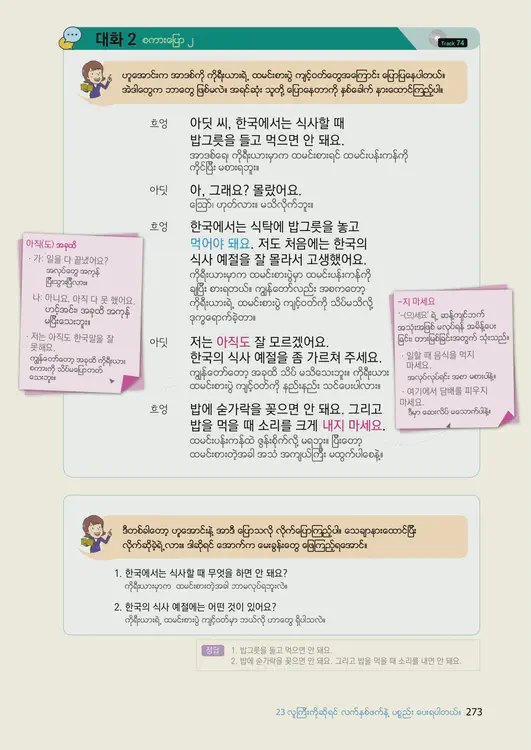 대화 2 စကားပြော ၂
Track 74
ဟူအောင်းက အာဒစ်ကို ကိုရီးယားရဲ့ ထမင်းစားပွဲ ကျင့်ဝတ်တွေအကြောင်း ပြောပြနေပါတယ်။
အဲဒါတွေက ဘာတွေ ဖြစ်မလဲ။ အရင်ဆုံး သူတို့ ပြောနေတာကို နှစ်ခေါက် နားထောင်ကြည့်ပါ။
흐엉 아딧 씨, 한국에서는 식사할 때
밥그릇을 들고 먹으면 안 돼요.
အာဒစ်ရေ၊ ကိုရီးယားမှာက ထမင်းစားရင် ထမင်းပန်းကန်ကို
ကိုင်ပြီး မစားရဘူး။
아딧 아, 그래요? 몰랐어요.
ဪ၊ ဟုတ်လား။ မသိလိုက်ဘူး။
흐엉 한국에서는 식탁에 밥그릇을 놓고
먹어야 돼요. 저도 처음에는 한국의
식사 예절을 잘 몰라서 고생했어요.
ကိုရီးယားမှာက ထမင်းစားပွဲမှာ ထမင်းပန်းကန်ကို
ချပြီး စားရတယ်။ ကျွန်တော်လည်း အစကတော့
ကိုရီးယားရဲ့ ထမင်းစားပွဲ ကျင့်ဝတ်ကို သိပ်မသိလို့
ဒုက္ခရောက်ခဲ့တာ။
아딧 저는 아직도 잘 모르겠어요.
한국의 식사 예절을 좀 가르쳐 주세요.
ကျွန်တော်ကတော့ အခုထိ သိပ် မသိသေးဘူး။ ကိုရီးယား
ထမင်းစားပွဲ ကျင့်ဝတ်ကို နည်းနည်း သင်ပေးပါလား။
흐엉 밥에 숟가락을 꽂으면 안 돼요. 그리고
밥을 먹을 때 소리를 크게 내지 마세요.
ထမင်းပန်းကန်ထဲ ဇွန်းစိုက်လို့ မရဘူး။ ပြီးတော့
ထမင်းစားတဲ့အခါ အသံ အကျယ်ကြီး မထွက်ပါစေနဲ့။
아직(도) အခုထိ
· 가: 일을 다 끝냈어요?
အလုပ်တွေ အကုန်
ပြီးသွားပြီလား။
나: 아니요, 아직 다 못 했어요.
ဟင့်အင်း၊ အခုထိ အကုန်
မပြီးသေးဘူး။
· 저는 아직도 한국말을 잘
못해요.
ကျွန်တော်ကတော့ အခုထိ ကိုရီးယား
စကားကို သိပ်မပြောတတ်
သေးဘူး။
-지 마세요
'-(으)세요' ရဲ့ ဆန့်ကျင်ဘက်
အသုံးအဖြစ် မလုပ်ရန် အမိန့်ပေး
ခြင်း၊ တားမြစ်ခြင်းအတွက် သုံးသည်။
· 일할 때 음식을 먹지
마세요.
အလုပ်လုပ်ရင်း အစာ မစားပါနဲ့။
· 여기에서 담배를 피우지
마세요.
ဒီမှာ ဆေးလိပ် မသောက်ပါနဲ့။
ဒီတစ်ခါတော့ ဟူအောင်းနဲ့ အာဒီ ပြောသလို လိုက်ပြောကြည့်ပါ။ သေချာနားထောင်ပြီး
လိုက်ဆိုခဲ့ရဲ့လား။ ဒါဆိုရင် အောက်က မေးခွန်းတွေ ဖြေကြည့်ရအောင်။
1. 한국에서는 식사할 때 무엇을 하면 안 돼요?
ကိုရီးယားမှာက ထမင်းစားတဲ့အခါ ဘာမလုပ်ရဘူးလဲ။
2. 한국의 식사 예절에는 어떤 것이 있어요?
ကိုရီးယားရဲ့ ထမင်းစားပွဲ ကျင့်ဝတ်မှာ ဘယ်လို ဟာတွေ ရှိပါသလဲ။
정답 1. 밥그릇을 들고 먹으면 안 돼요.
2. 밥에 숟가락을 꽂으면 안 돼요. 그리고 밥을 먹을 때 소리를 내면 안 돼요.
23 လူကြီးကိုဆိုရင် လက်နှစ်ဖက်နဲ့ ပစ္စည်း ပေးရပါတယ်။ 273